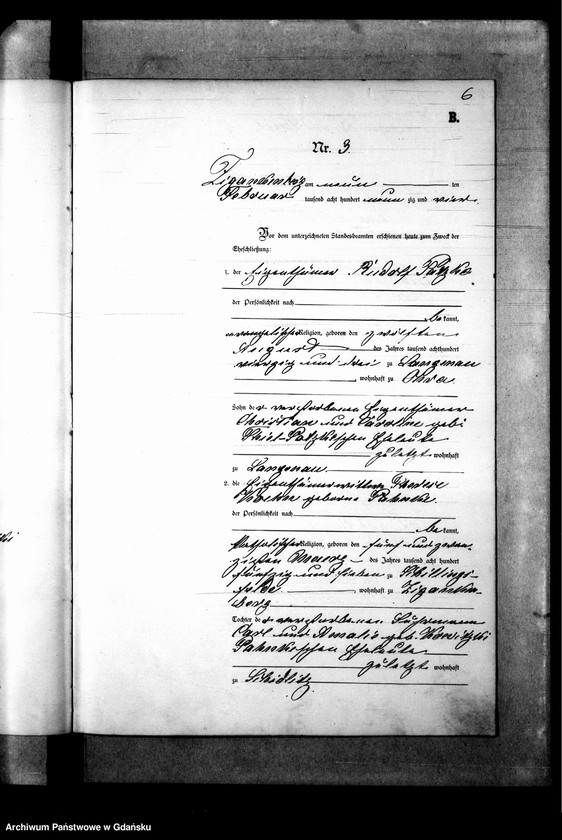 6
B.
Nr. 3.
Zigankenberg am neun ten
Februar tausend acht hundert neun zig und vier.
Vor dem unterzeichneten Standesbeamten erschienen heute zum Zweck der
Eheschließung:
1. der Eigenthümer Rudolf Patzke
der Persönlichkeit nach
be kannt,
evangelischer Religion, geboren den zwölften
August des Jahres tausend achthundert
vierzig und drei zu Langenau
, wohnhaft zu Ohra
Sohn der verstorbenen Eigenthümer
Christian und Caroline geb.
Patzkeschen Eheleute
zuletzt wohnhaft
zu Langenau
2. die Eigenthümerwittwe
geborene Pahnke
der Persönlichkeit nach
be kannt,
katholischer Religion, geboren den fünf und zwan-
zigsten Maerz des Jahres tausend acht hundert
fünfzig und sieben zu Schillings-
felde , wohnhaft zu Ziganken-
berg
Tochter der verstorbenen Fuhrmann
Carl und Amalie geb.
Pahnkeschen Eheleute
zuletzt wohnhaft
zu Schidlitz
Archiwum Państwowe w Gdańsku